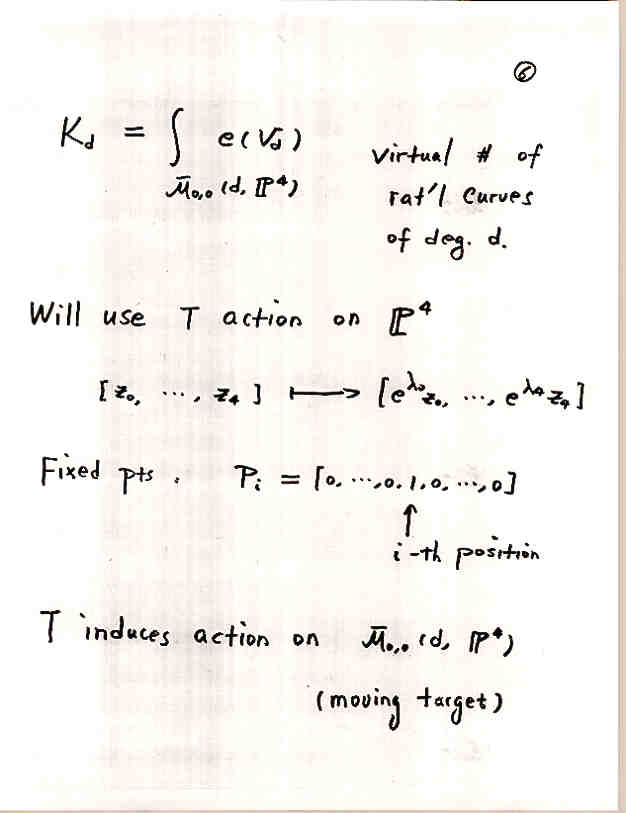 ⑥
K_d = ∫ e(V_d) virtual # of
M̄₀,₀(d, ℙ⁴) rat'l curves
of deg. d.
Will use T action on ℙ⁴
[z₀, ⋯, z₄] ⟼ [e^{λ₀}z₀, ⋯, e^{λ₄}z₄]
Fixed pts. P_i = [0, ⋯, 0, 1, 0, ⋯, 0]
↑
i-th position
T induces action on M̄₀,₀(d, ℙ⁴)
(moving target)